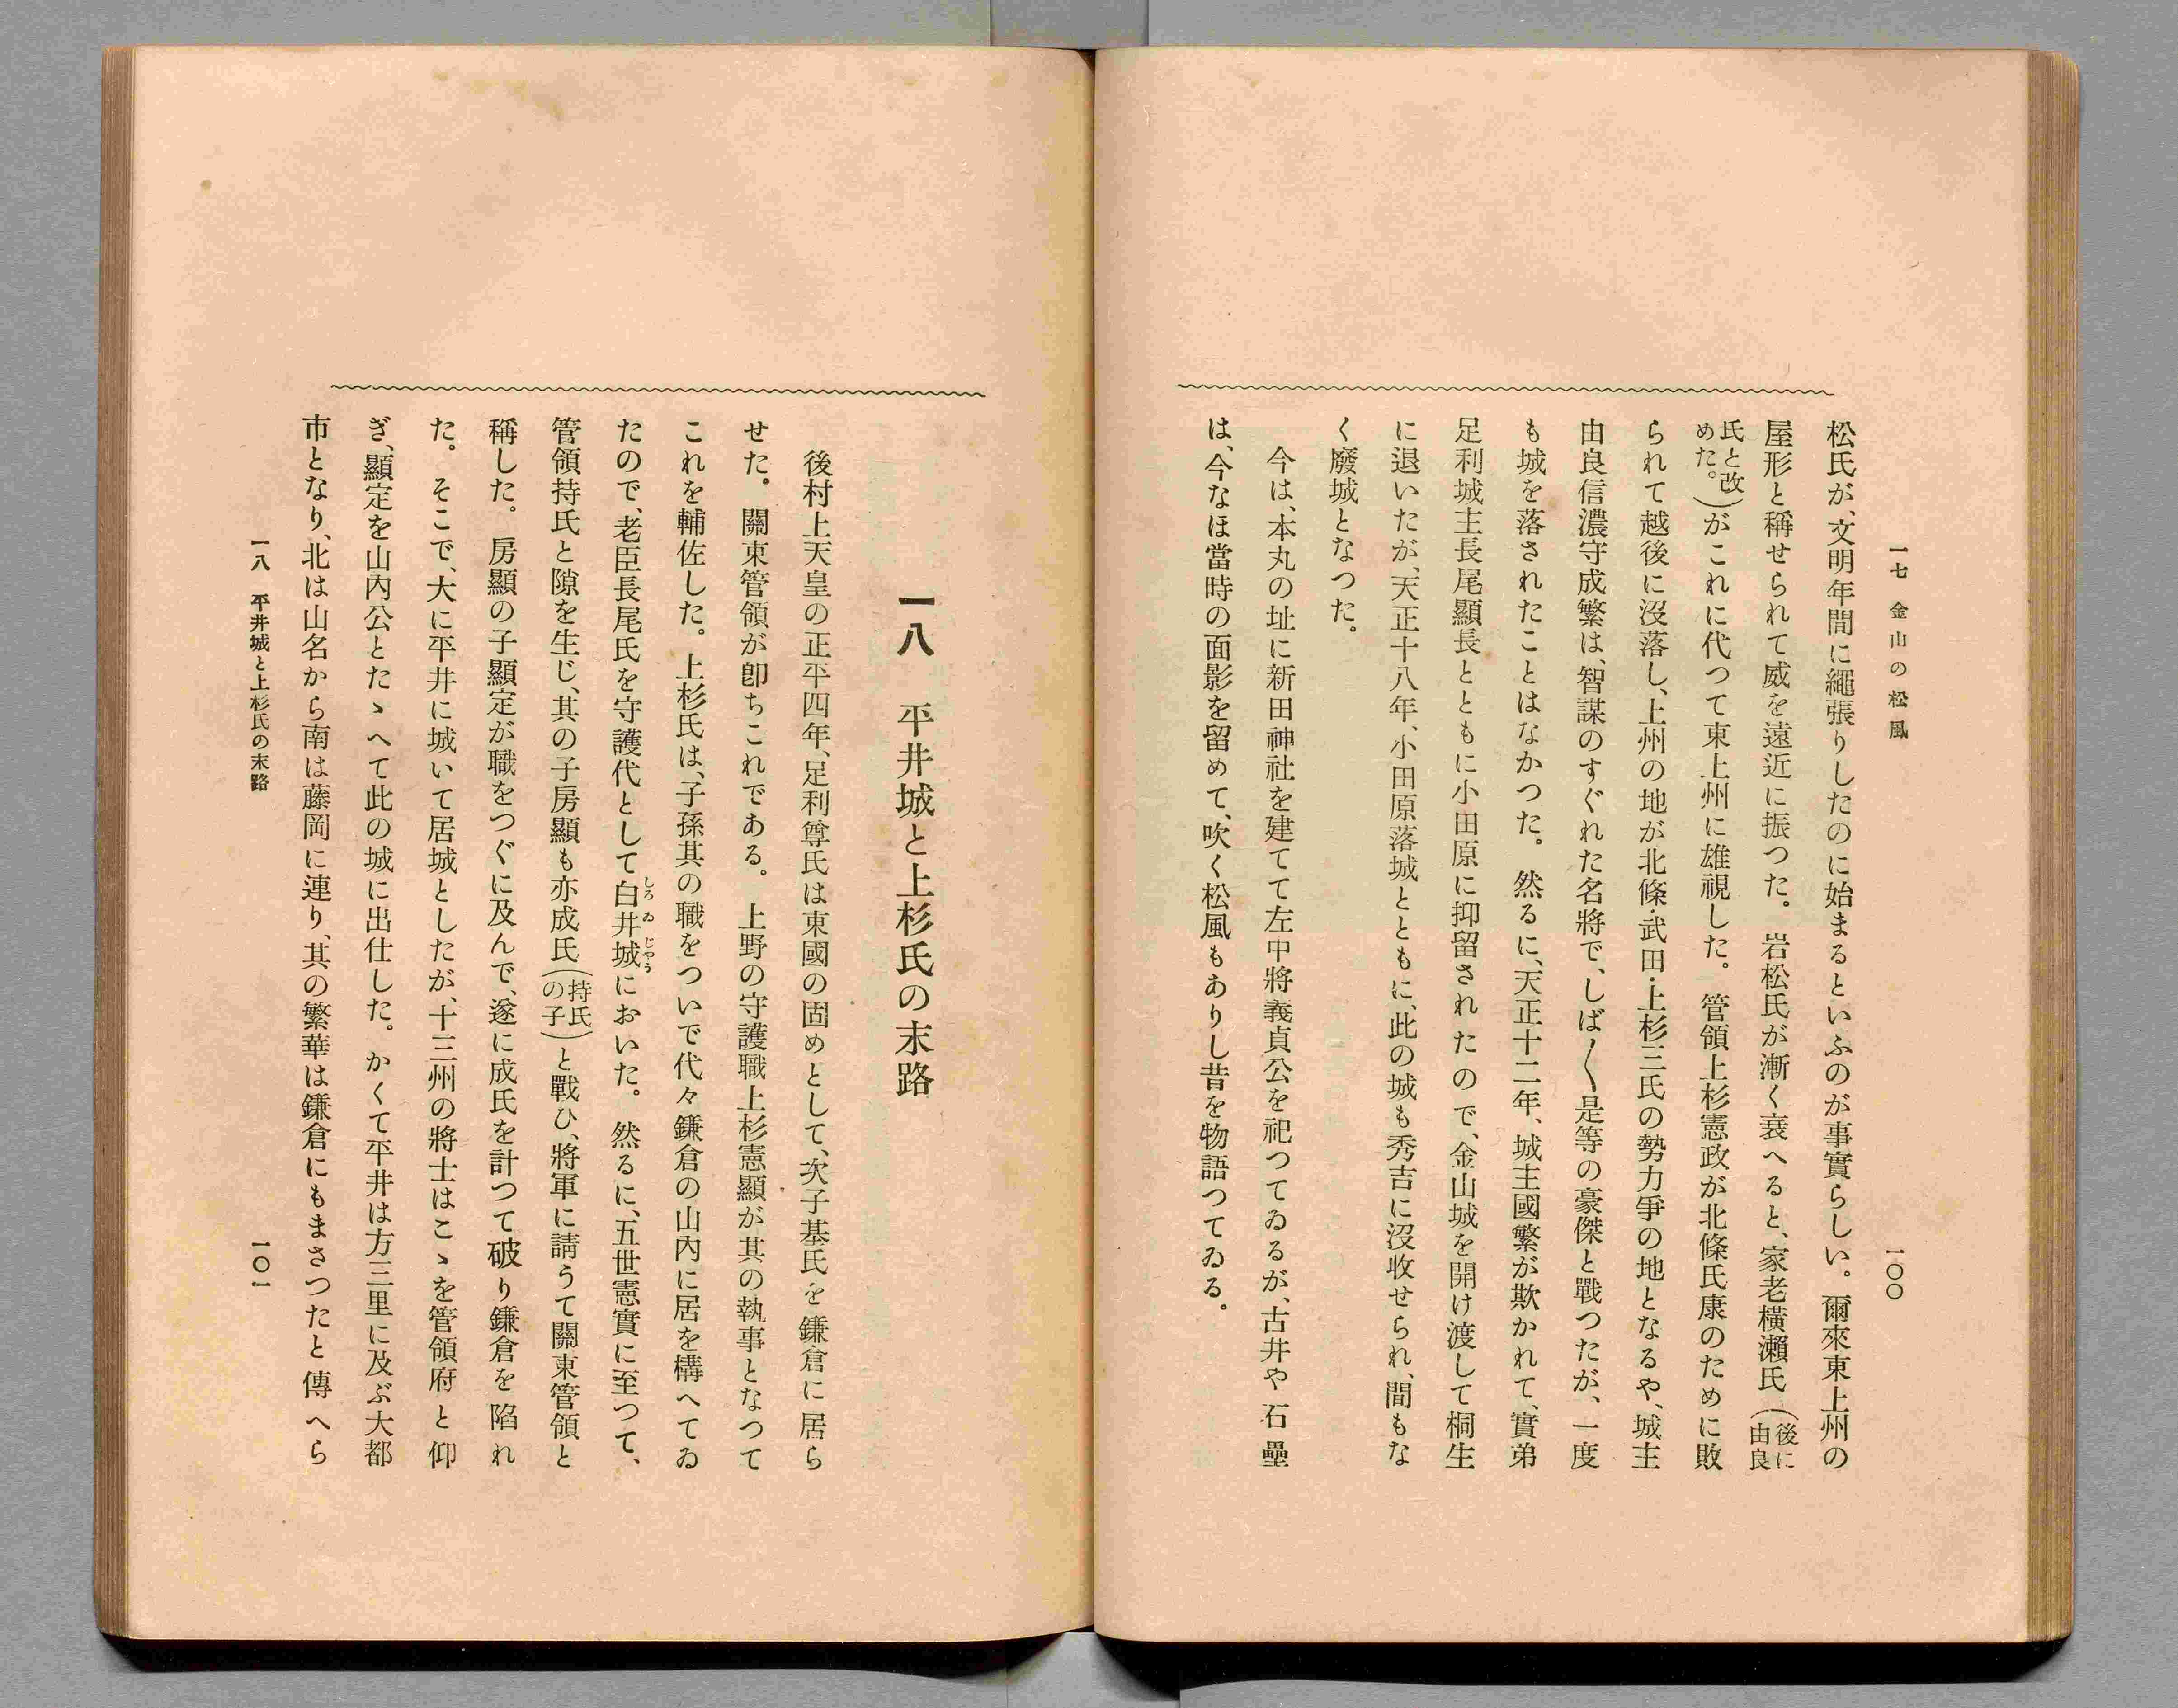 一七 金山の松風
一〇〇
松氏が、文明年間に繩張りしたのに始まるといふのが事實らしい。爾來東上州の
屋形と稱せられて威を遠近に振つた。岩松氏が漸く衰へると、家老横瀨氏(後に由良
氏と改めた。)がこれに代つて東上州に雄視した。管領上杉憲政が北條氏康のために敗
られて越後に沒落し、上州の地が北條・武田・上杉三氏の勢力爭の地となるや、城主
由良信濃守成繁は、智謀のすぐれた名將で、しば〱是等の豪傑と戰つたが、一度
も城を落されたことはなかつた。然るに、天正十二年、城主國繁が欺かれて、實弟
足利城主長尾顯長とともに小田原に抑留されたので、金山城を開け渡して桐生
に退いたが、天正十八年、小田原落城とともに、此の城も秀吉に沒收せられ、間もな
く廢城となつた。
今は、本丸の址に新田神社を建てて左中將義貞公を祀つてゐるが、古井や石壘
は、今なほ當時の面影を留めて、吹く松風もありし昔を物語つてゐる。
一八 平井城と上杉氏の末路
後村上天皇の正平四年、足利尊氏は東國の固めとして、次子基氏を鎌倉に居ら
せた。關東管領が卽ちこれである。上野の守護職上杉憲顯が其の執事となつて
これを輔佐した。上杉氏は、子孫其の職をついで代々鎌倉の山內に居を構へてゐ
たので、老臣長尾氏を守護代として白井城しろゐじやうにおいた。然るに、五世憲實に至つて、
管領持氏と隙を生じ、其の子房顯も亦成氏(持氏の子)と戰ひ、將軍に請うて關東管領と
稱した。房顯の子顯定が職をつぐに及んで、遂に成氏を計つて破り鎌倉を陷れ
た。そこで、大に平井に城いて居城としたが、十三州の將士はこゝを管領府と仰
ぎ、顯定を山內公とたゝへて此の城に出仕した。かくて平井は方三里に及ぶ大都
市となり、北は山名から南は藤岡に連り、其の繁華は鎌倉にもまさつたと傳へら
一八 平井城と上杉氏の末路
一〇一